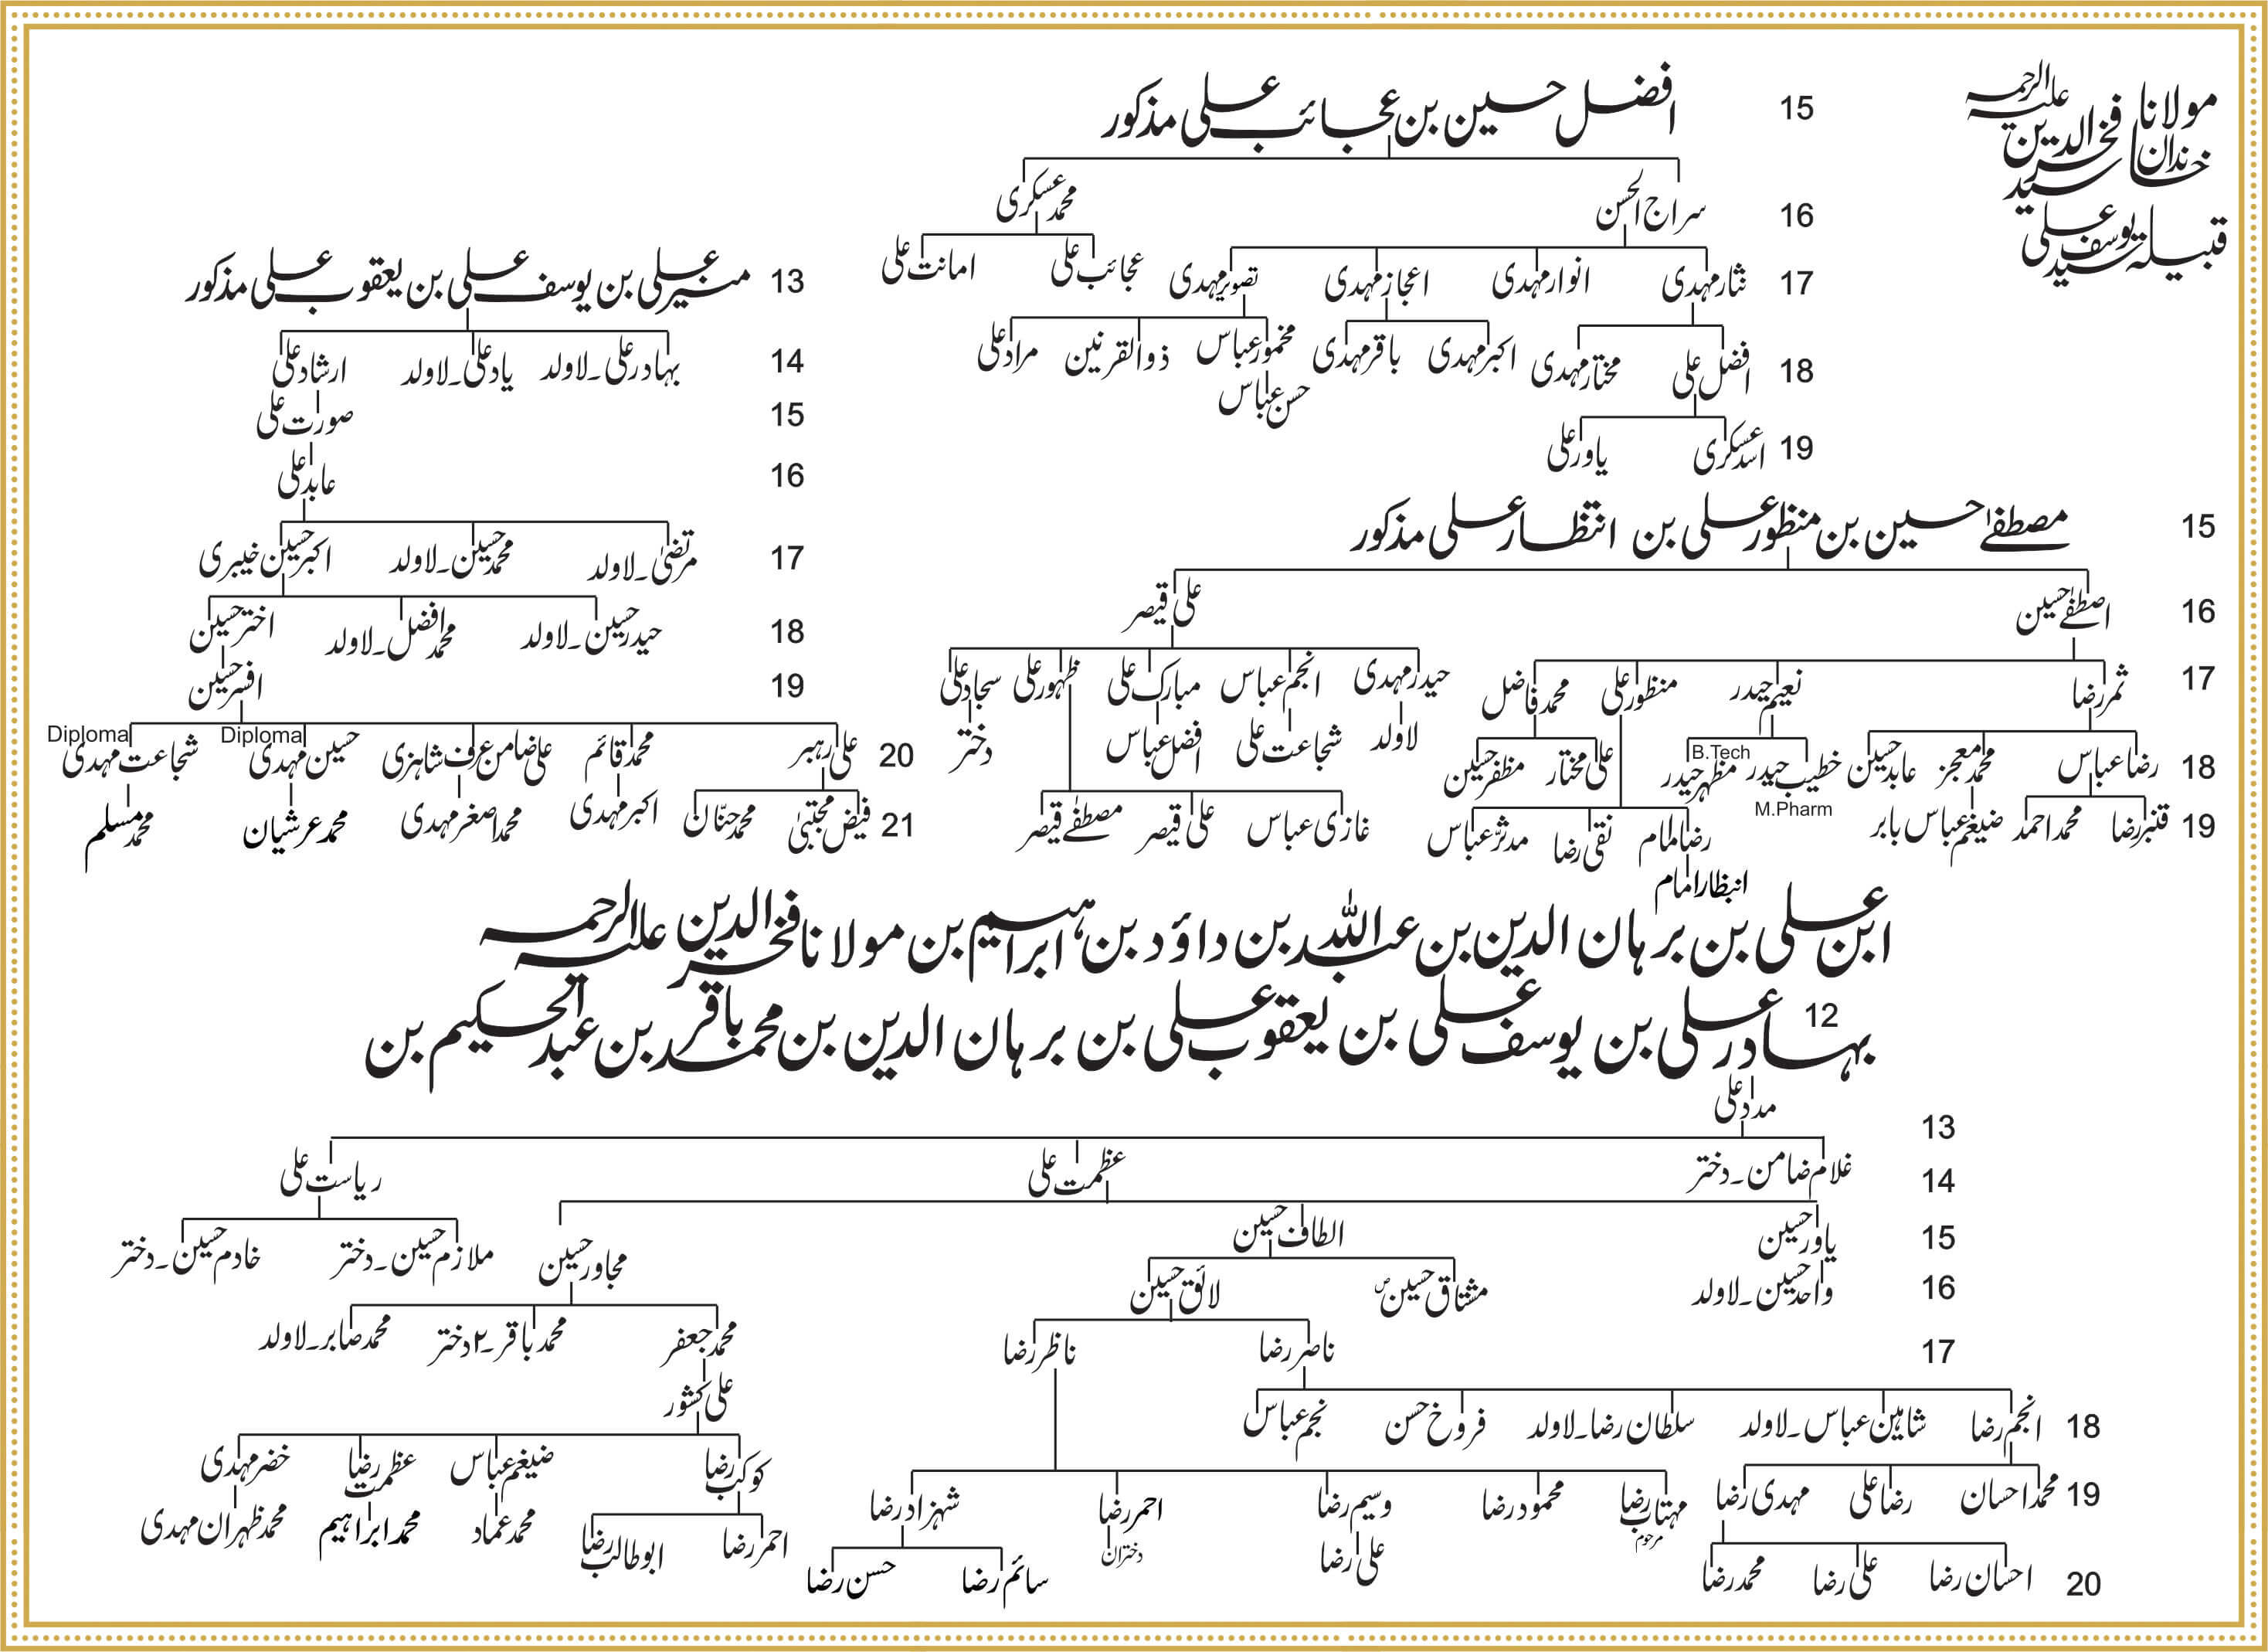 مولانا علیہ الرحمہ
خاندان سید فخر الدین
قبیلہ سید یوسف علی
15 افضل حسین بن عجائب علی مذکور
16 سراج الحسن محمد عسکری
17 نثار مہدی انوار مہدی اعجاز مہدی تصویر مہدی عجائب علی امانت علی
18 افضل علی مختار مہدی اکبر مہدی باقر مہدی مخمور عباس ذوالقرنین مراد علی
حسن عباس
19 اسد عسکری یاور علی
13 منیر علی بن یوسف علی بن یعقوب علی مذکور
14 بہادر علی۔لاولد یاد علی۔لاولد ارشاد علی
15 صورت علی
16 عابد علی
17 مرتضیٰ۔لاولد محمد حسین۔لاولد اکبر حسین خیبری
18 حیدر حسین۔لاولد محمد افضل۔لاولد اختر حسین
19 افسر حسین
20 علی رہبر محمد قائم علی ضامن عرف شاہزی حسین مہدی Diploma شجاعت مہدی Diploma
21 فیض مجتبیٰ محمد حنّان اکبر مہدی محمد اصغر مہدی محمد عرشیان محمد مسلم
15 مصطفےٰ حسین بن منظور علی بن انتظار علی مذکور
16 اصطفےٰ حسین علی قیصر
17 ثمر رضا نعیم حیدر منظور علی محمد فاضل حیدر مہدی انجم عباس مبارک علی ظہور علی سجاد علی
18 رضا عباس محمد معجز عابد حسین خطیب حیدر مظہر حیدر B.Tech علی مختار مظفر حسین لاولد شجاعت علی افضل عباس دختر
M.Pharm
19 قنبر رضا محمد احمد ضیغم عباس بابر رضا امام نقی رضا مدثر عباس غازی عباس علی قیصر مصطفےٰ قیصر
انتظار امام
ابن علی بن برہان الدین بن عبداللہ بن داؤد بن ابراہیم بن مولانا فخر الدین علیہ الرحمہ
12 بہادر علی بن یوسف علی بن یعقوب علی بن برہان الدین بن محمد باقر بن عبدالحکیم بن
13 مداد علی
14 غلام ضامن۔دختر عظمت علی ریاست علی
15 یاور حسین الطاف حسین مجاور حسین ملازم حسین۔دختر خادم حسین۔دختر
16 واحد حسین۔لاولد مشتاق حسین ص لائق حسین
17 ناصر رضا ناظر رضا محمد جعفر محمد باقر۔۲ دختر محمد صابر۔لاولد
علی کشور
18 انجم رضا شاہین عباس۔لاولد سلطان رضا۔لاولد فروخ حسن نجم عباس کوکب رضا ضیغم عباس عظمت رضا خضر مہدی
19 محمد احسان رضا علی مہدی رضا مہتاب رضا مرحوم محمود رضا وسیم رضا احمر رضا شہزاد رضا احمر رضا ابوطالب رضا محمد عماد محمد ابراہیم محمد ظہران مہدی
20 احسان رضا علی رضا محمد رضا علی رضا دختران سائم رضا حسن رضا